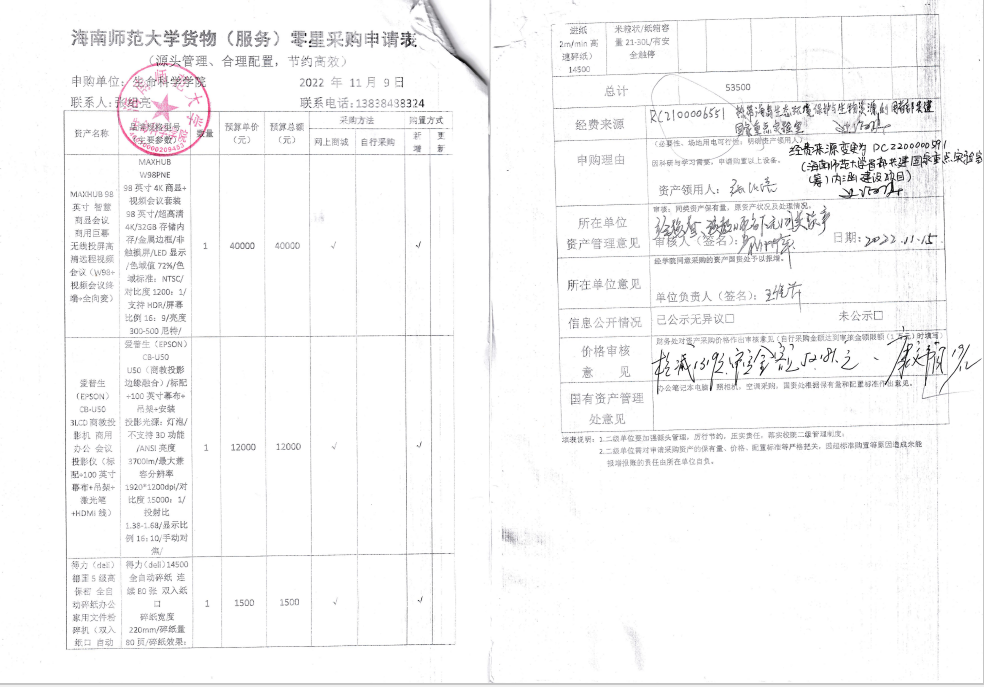 海南师范大学货物（服务）零星采购申请表
（源头管理、合理配置，节约高效）
申购单位：生命科学学院 2022 年 11 月 9 日
联系人： 联系电话：13838438324
资产名称
品牌规格型号
（主要参数）
数量
预算单价
（元）
预算总额
（元）
采购方法
网上商城 自行采购
购置方式
新增
更新
MAXHUB 98
英寸 智慧
商显会议
商用巨幕
无线投屏高
清远程视频
会议（W98+
视频会议终
端+全向麦）
MAXHUB
W98PNE
98 英寸 4K 商显+
视频会议套装
98 英寸/超高清
4K/32GB 存储内
存/金属边框/非
触摸屏/LED 显示
/色域值 72%/色
域标准：NTSC/
对比度 1200：1/
支持 HDR/屏幕
比例 16：9/亮度
300-500 尼特/
1 40000 40000 √ √
爱普生
（EPSON）
CB-U50
3LCD 商教投
影机 商用
办公 会议
投影仪（标
配+100 英寸
幕布+吊架+
激光笔
+HDMI 线）
爱普生（EPSON）
CB-U50
U50（商教投影
边缘融合）/标配
+100 英寸幕布+
吊架+安装
投影光源：灯泡/
不支持 3D 功能
/ANSI 亮度
3700lm/最大兼
容分辨率
1920*1200dpi/对
比度 15000：1/
投射比
1.38-1.68/显示比
例 16：10/手动对
焦/
1 12000 12000 √ √
得力（deli）
5 级高
保密 全自
动碎纸办公
家用文件粉
碎机（双入
纸口 自动
得力(deli)14500
全自动碎纸 连
续 80 张 双入纸
口
碎纸宽度
220mm/碎纸量
80 页/碎纸效果：
1 1500 1500 √ √
进纸
2m/min 高
速碎纸）
14500
米粒状/纸箱容
量 21-30L/有安
全触停
总计 53500
经费来源
国家重点实验室
申购理由
（必要性、场地用电可行性；明确资产领用人）
因科研与学习需要，申请购置以上设备。
资产领用人：
经费来源变更为 DC2200000591
（海南师范大学省部共建国家重点实验室
（筹）内涵建设项目）
所在单位
资产管理意见
审核：同类资产保有量、原资产状况及处理情况。
审核人（签名）： 日期：2022.11.15.
所在单位意见
经学院同意采购的资产国资处予以报增。
单位负责人（签名）：
信息公开情况 已公示无异议□ 未公示□
价格审核
意 见
国有资产管理
处意见
办公笔记本电脑、照相机、空调采购，国资处根据保有量和配置标准作出意见。
填表说明：1.二级单位要加强源头管理，厉行节约，压实责任，落实校院二级管理制度；
2.二级单位需对申请采购资产的保有量、价格、配置标准等严格把关，因超标准购置等原因造成未能
报增报账的责任由所在单位自负。